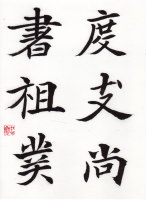 度支尚
書祖